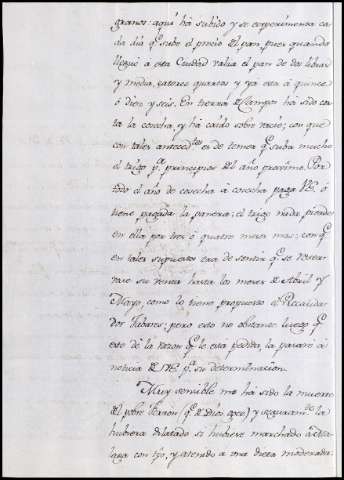 granos: aquí há subido y se experimenta ca
da dia qᵉ sube el precio del pan, pues quando
llegué a esta Ciudad valia el pan de dos libras
y media, catorce quartos y ya está á quince
ó diez y seis. En tierra de Campos há sido cor
ta la cosecha, y há caído sobre vacio; con que
con tales anteced.ᵗᵉˢ es de temer qᵉ suba mucho
el trigo pᵃ principios del año proximo. Por
todo el año de cosecha à cosecha paga
tiene pagada la panera; el trigo nada pierde
en ella por tres ó quatro meses mas; con qᵉ
en tales supuestos era de sentir qᵉ se reser
vase su venta hasta los meses de Abril y
Mayo, como lo tiene propuesto el Recauda
dor Tabares; pero esto no obstante luego qᵉ
este dé la razon qᵉ le está pedida, la pasaré à
noticia de pᵃ su determinacion.
Muy sensible me há sido la muerte
del pobre (qᵉ de Dios goce) y seguramᵗᵉ la
hubiera dilatado si hubiese marchado à Ma
laga con tpo, y atenido a una dieta moderada.